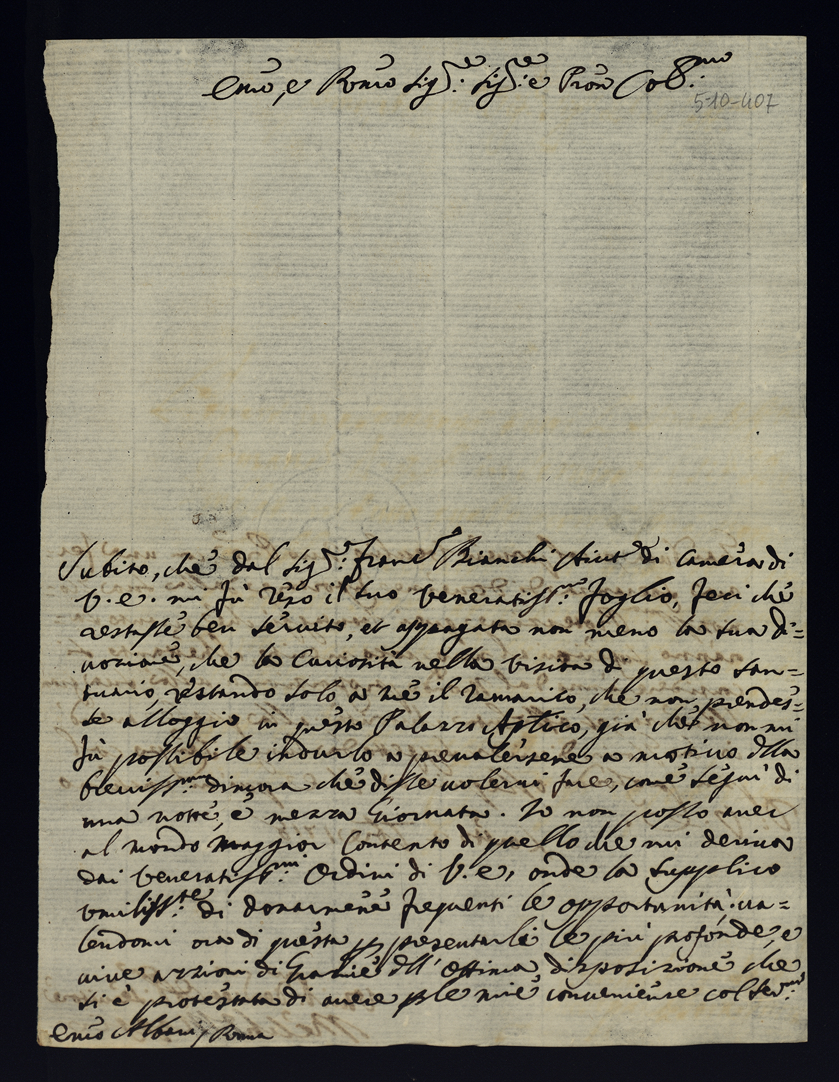 Emo, e Rmo Sig.re Sig.re e Pron Col.mo
5-10-407
Subito, che dal Sig.re Franc.o Bianchi Aiut.e di Camera di
V.E. mi fù reso il suo veneratiss.mo foglio, feci che
restasse ben servito, et appagata non meno la sua di=
vozione, che la Curiosità nella visita di questo San=
tuario, restando solo a me il ramarico, che non prendes=
se alloggio in questo Palazzo Aplico, già che non mi
fù possibile indurlo a prevalersene a motivo della
breviss.ma dimora che disse volervi fare, come seguì di
una notte, e mezza Giornata. Io non posso aver
al mondo maggior Contento di quello che mi deriva
dai veneratiss.mi Ordini di V.E, onde la supplico
umiliss.te di donarmene frequenti le opportunità: va=
lendomi ora di questa p presentarle le più profonde, e
vive azzioni di Grazie dell' Ottima disposizione che
si è protestata di avere p le mie convenienze col Ser.mo
Emo Albani, Roma